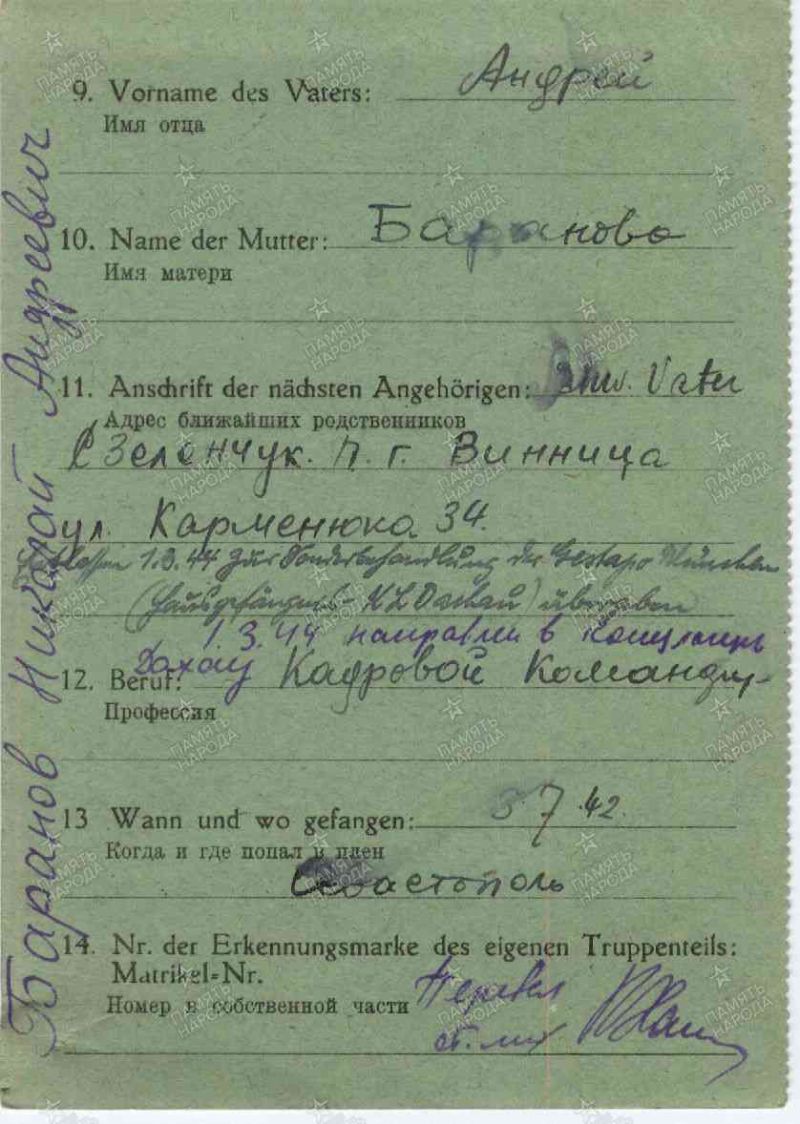 9. Vorname des Vaters: Андрей
Имя отца
10. Name der Mutter: Баранова
Имя матери
11. Anschrift der nächsten Angehörigen: Vater
Адрес ближайших родственников
Зеленчук. п. г. Винница
ул. Карменюка 34.
Entlassen 1.3.44 zur Sonderbehandlung der Gestapo München
(Hausgefängnis - KL Dachau) übergeben
1.3.44 направлен в концлагерь
Дахау
12. Beruf: Кадровой Командир
Профессия
13 Wann und wo gefangen: 3 7.42
Когда и где попал в плен
Севастополь
14. Nr. der Erkennungsmarke des eigenen Truppenteils:
Matrikel=Nr.
Номер в собственной части
Перевел
Баранов Николай Андреевич
ПАМЯТЬ
НАРОДА